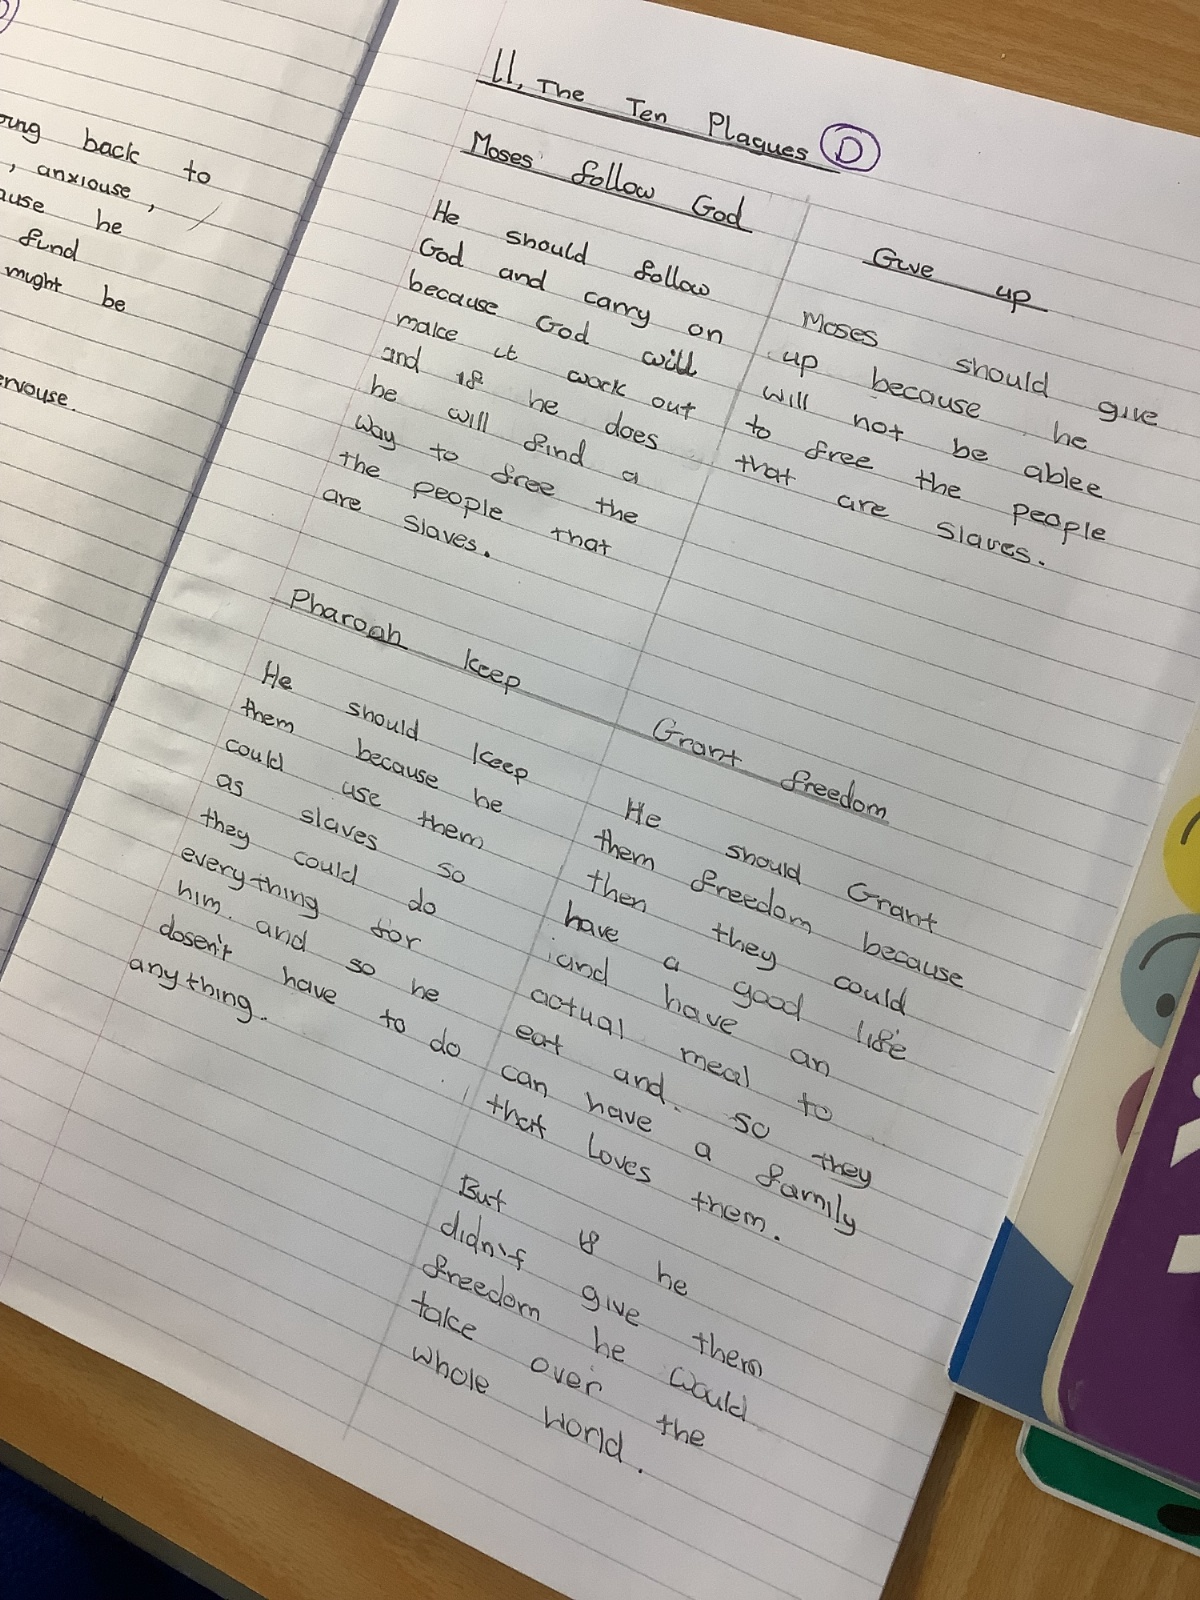 back to
, anxiouse ,
he
find
might be
11, The Ten Plagues D
Moses follow God
He should follow
God and carry on
because God will
make it work out
and if he does
he will find a
way to free the
the people that
are slaves.
Give up
Moses should give
up because he
will not be ablee
to free the people
that are slaves.
Pharoah keep
He should keep
them because he
could use them
as slaves so
they could do
everything for
him. and so he
dosen't have to do
anything.
Grant freedom
He should Grant
them freedom because
then they could
have a good life
and have an
actual meal to
eat and. so they
can have a family
that loves them.
But if he
didn't give them
freedom he would
take over the
whole world.